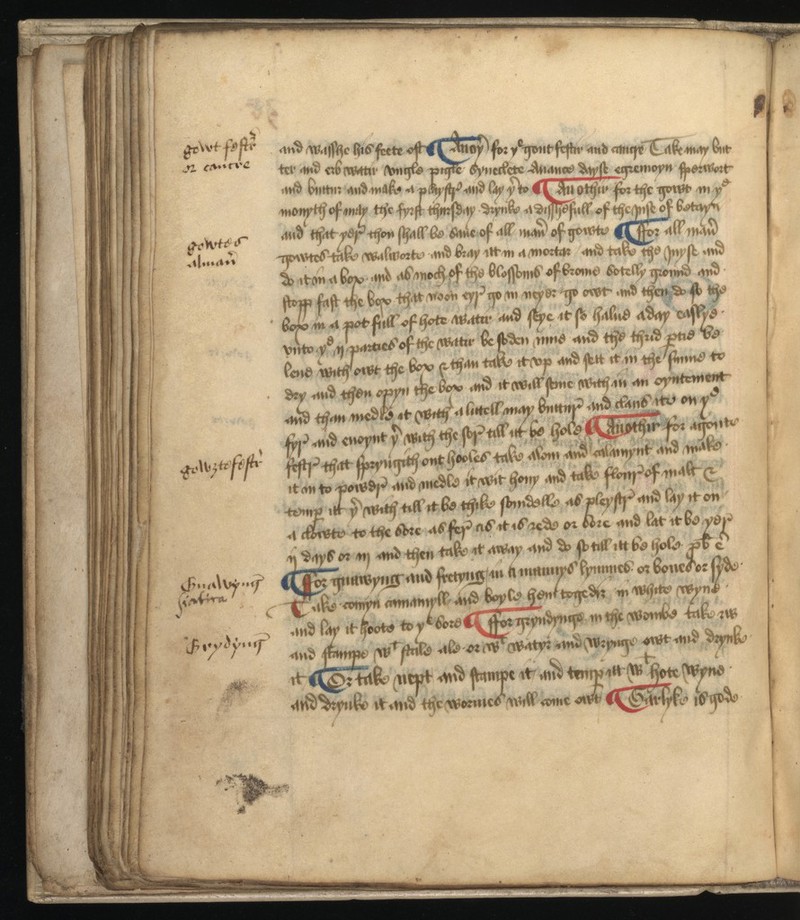 gowt festr
or cancre
and wasshe his feete oft Anoyr for yͤ gout festir and cancre Take may but
ter and erb watir vngle pigle Syneclete Auance dayse egremoyn sperwort
and buttur and make a playstr and lay yr to Anothir for the gowt in yͤ
monyth of may the fyrst thursday drynke a disshefull of the juse of betayn
and that yer thou shall be saue of all man of gowte For all man
gowtes
alman
gowtes take walworte and bray itt in a mortar and take the Juyse and
do it in a box and as moch of the blossoms of brome sotelly ground and
stopp fast the box that noon eyr go in neyer go owt and then do so the
box in a pot full of hote watir and seye it so halue a day easlye
vnto yͤ ij parties of the watir be soden inne and the thrid ptie be
leue with owt the box & than take it vp and sett it in the sunne to
dry and then opyn the box and it will seme with in an oyntement
and than medle it with a littell may buttur and clans itt on yͤ
fyr and enoynt yr with the sor till itt be hole Anothir for a goute
gowt festr
festr that spryngith out hooles take alom and calamynt and make
it in to powdr and medle it wit hony and take flour of malt &
temp itt yr with till it be thike somdelle as pleystr and lay it on
a clowte to the sore as fer as it is rede or sore and lat it be yer
ij days or iij and then take it away and do so till itt be hole pb e
Gnawyng
sciatica
For gnawyng and fretyng in a mannys lymmes or bones or syde
Take comyn camamyll and boyle hem togedir in white wyne
and lay it hoote to yͤ sore For gryndynge in the wombe take rw
Gryndyng
and stampe wt stale ale or wt watyr and wrynge owt and drynke
it Or take nept and stampe it and temp itt wt hote wyne
and drynke it and the wormes will come owt Garlyke is gode